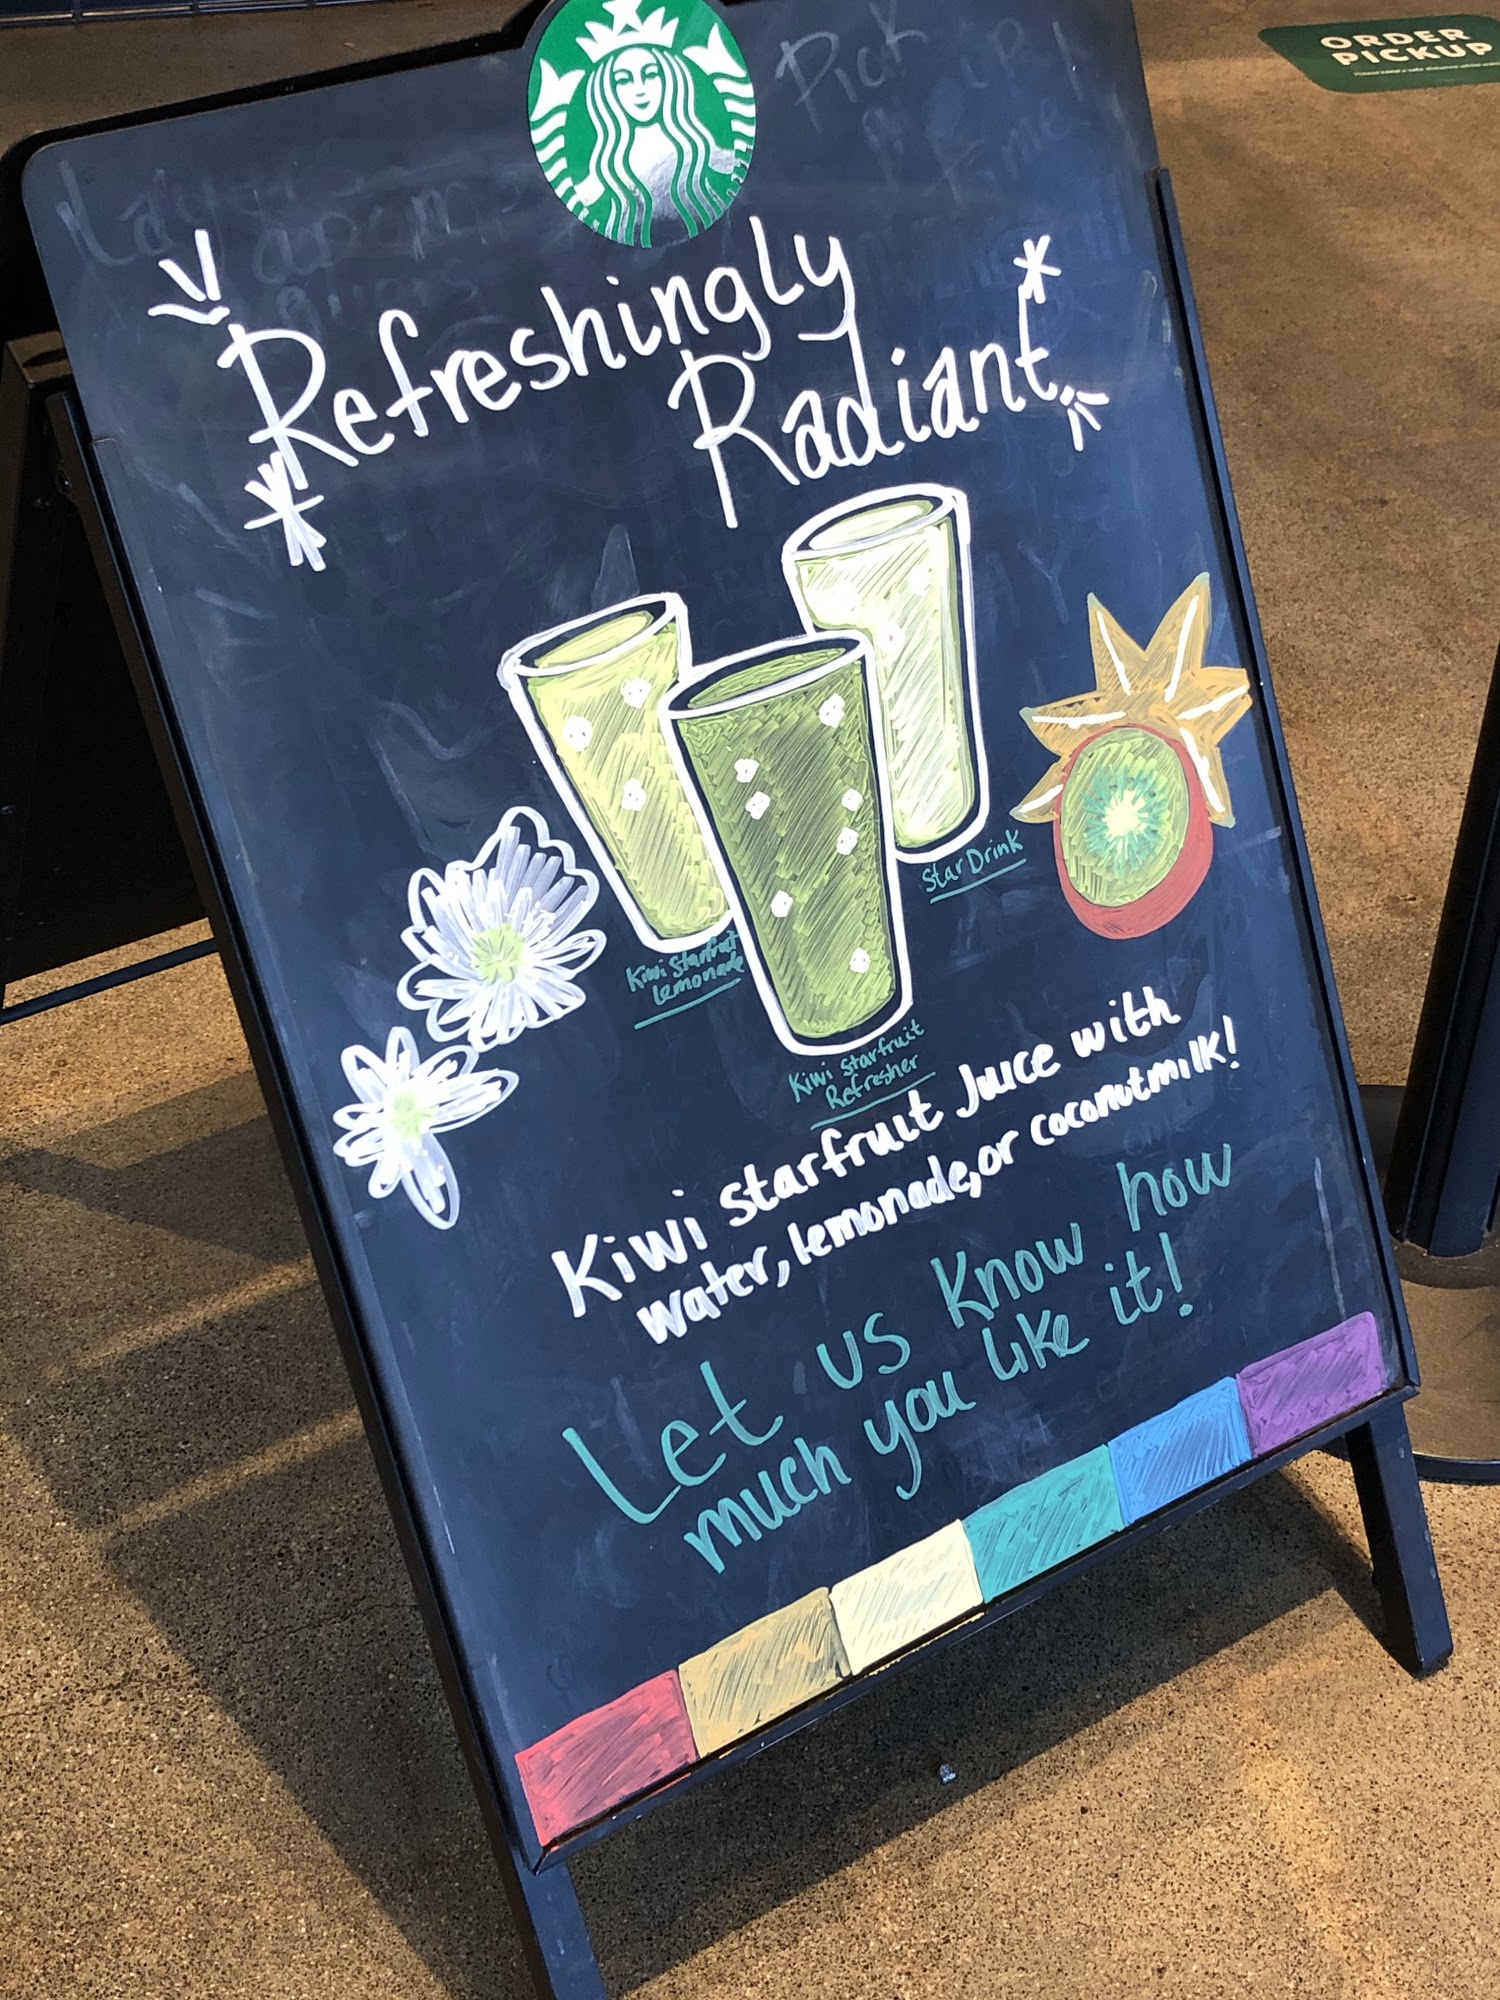 ORDER
PICKUP
Pick
Refreshingly
Radiant
Star Drink
Kiwi Starfruit
Lemonade
Kiwi Starfruit
Refresher
Kiwi starfruit juice with
water, lemonade, or coconutmilk!
Let us know how
much you like it!